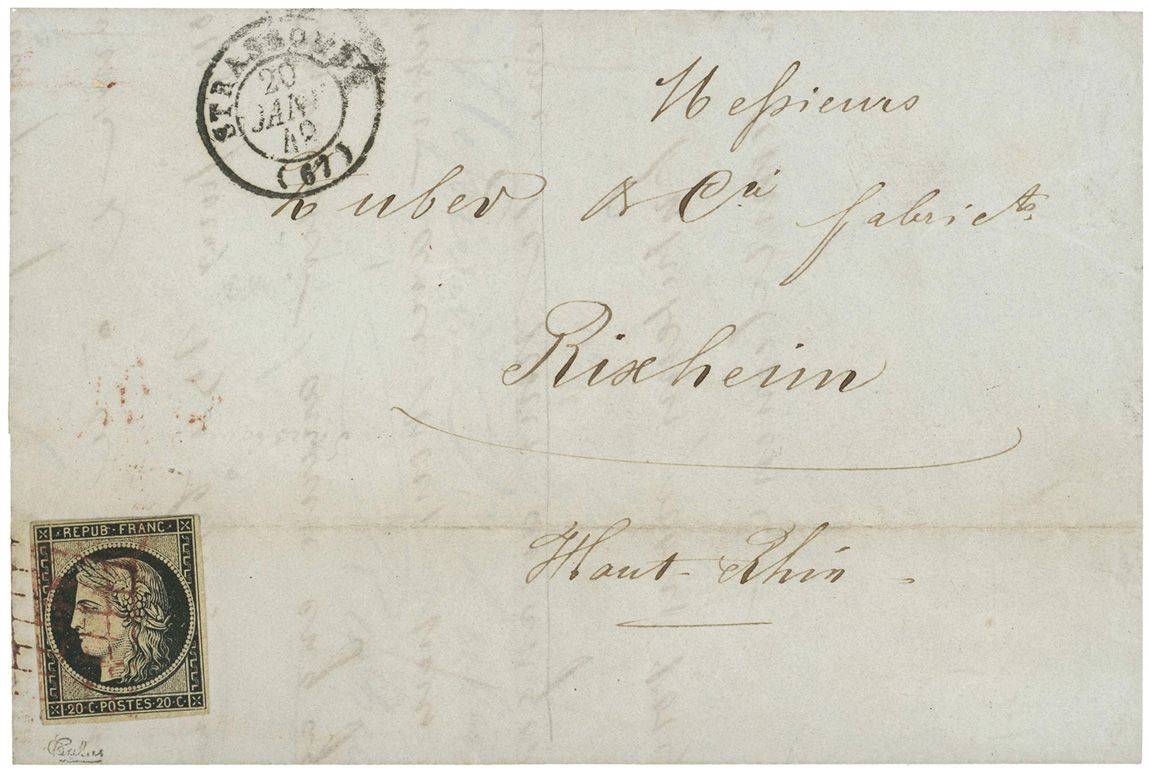 STRASBOURG
20
JANV.
49
(67)
Messieurs
Zuber & Cie fabricts
Rixheim
Haut-Rhin
REPUB·FRANC·
20·C·POSTES·20·C·